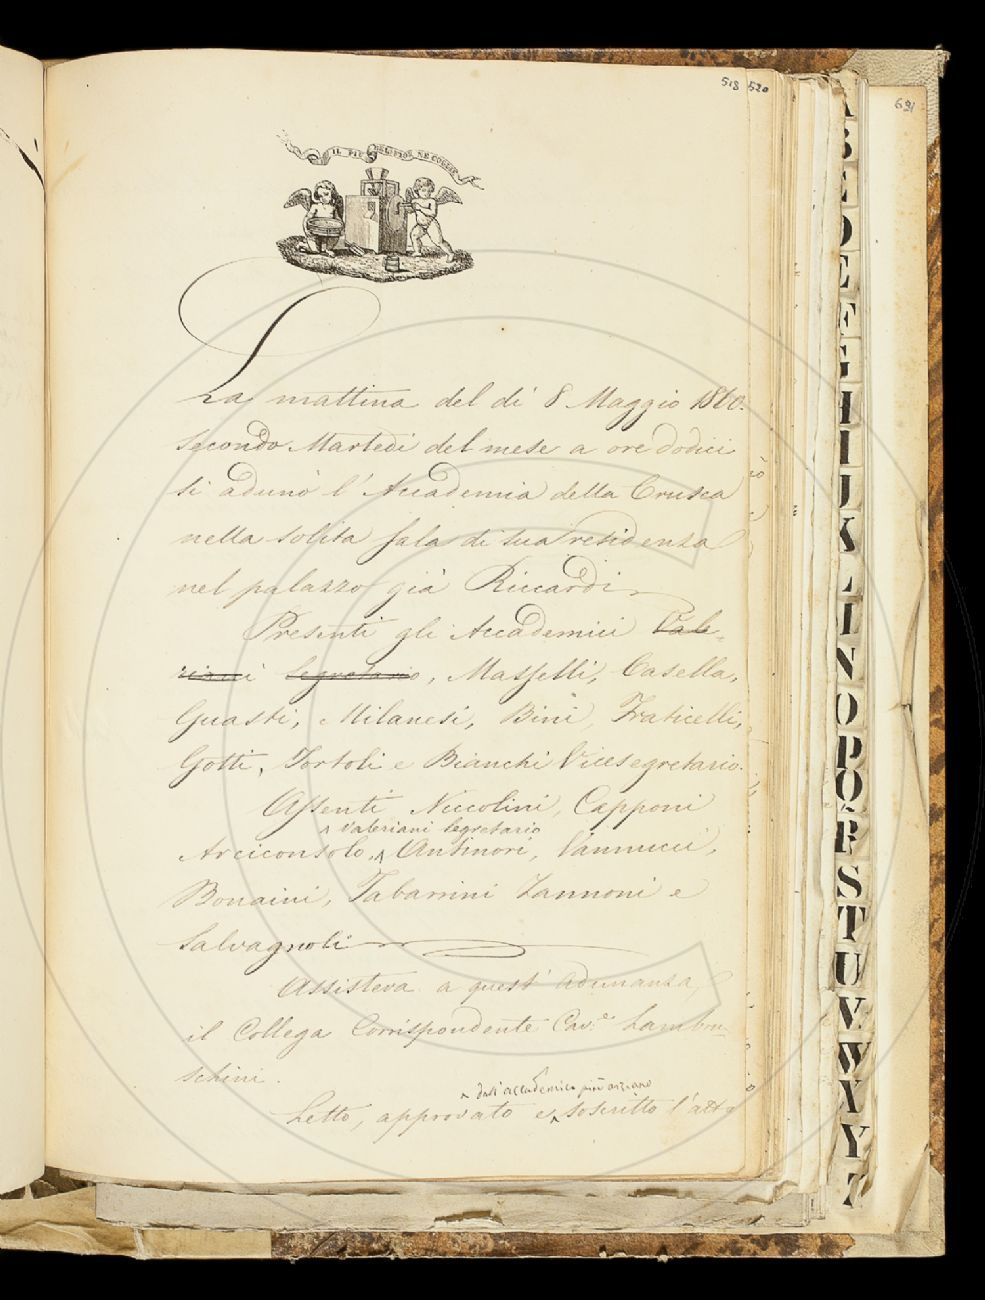 518 520
691
IL PIÙ BEL FIOR NE COGLIE
La mattina del dì 8 Maggio 1860.
secondo Martedì del mese a ore dodici
si adunò l'Accademia della Crusca
nella solita sala di sua residenza
nel palazzo già Riccardi
Presenti gli Accademici Vale-
riani Segretario, Masselli, Casella,
Guasti, Milanesi, Bini, Fraticelli,
Gotti, Tortoli e Bianchi Vicesegretario.
Assenti Niccolini, Capponi
Valeriani Segretario
Arciconsolo, Antinori, Vannucci,
Bonaini, Tabarrini Zannoni e
Salvagnoli
Assisteva a quest'adunanza
il Collega Corrispondente Cav.e Lambru-
schini.
dall'accademico più anziano
Letto, approvato e soscritto l'atto
A
B
C
D
E
F
G
H
I
J
K
L
M
N
O
P
Q
R
S
T
U
V
W
X
Y
Z